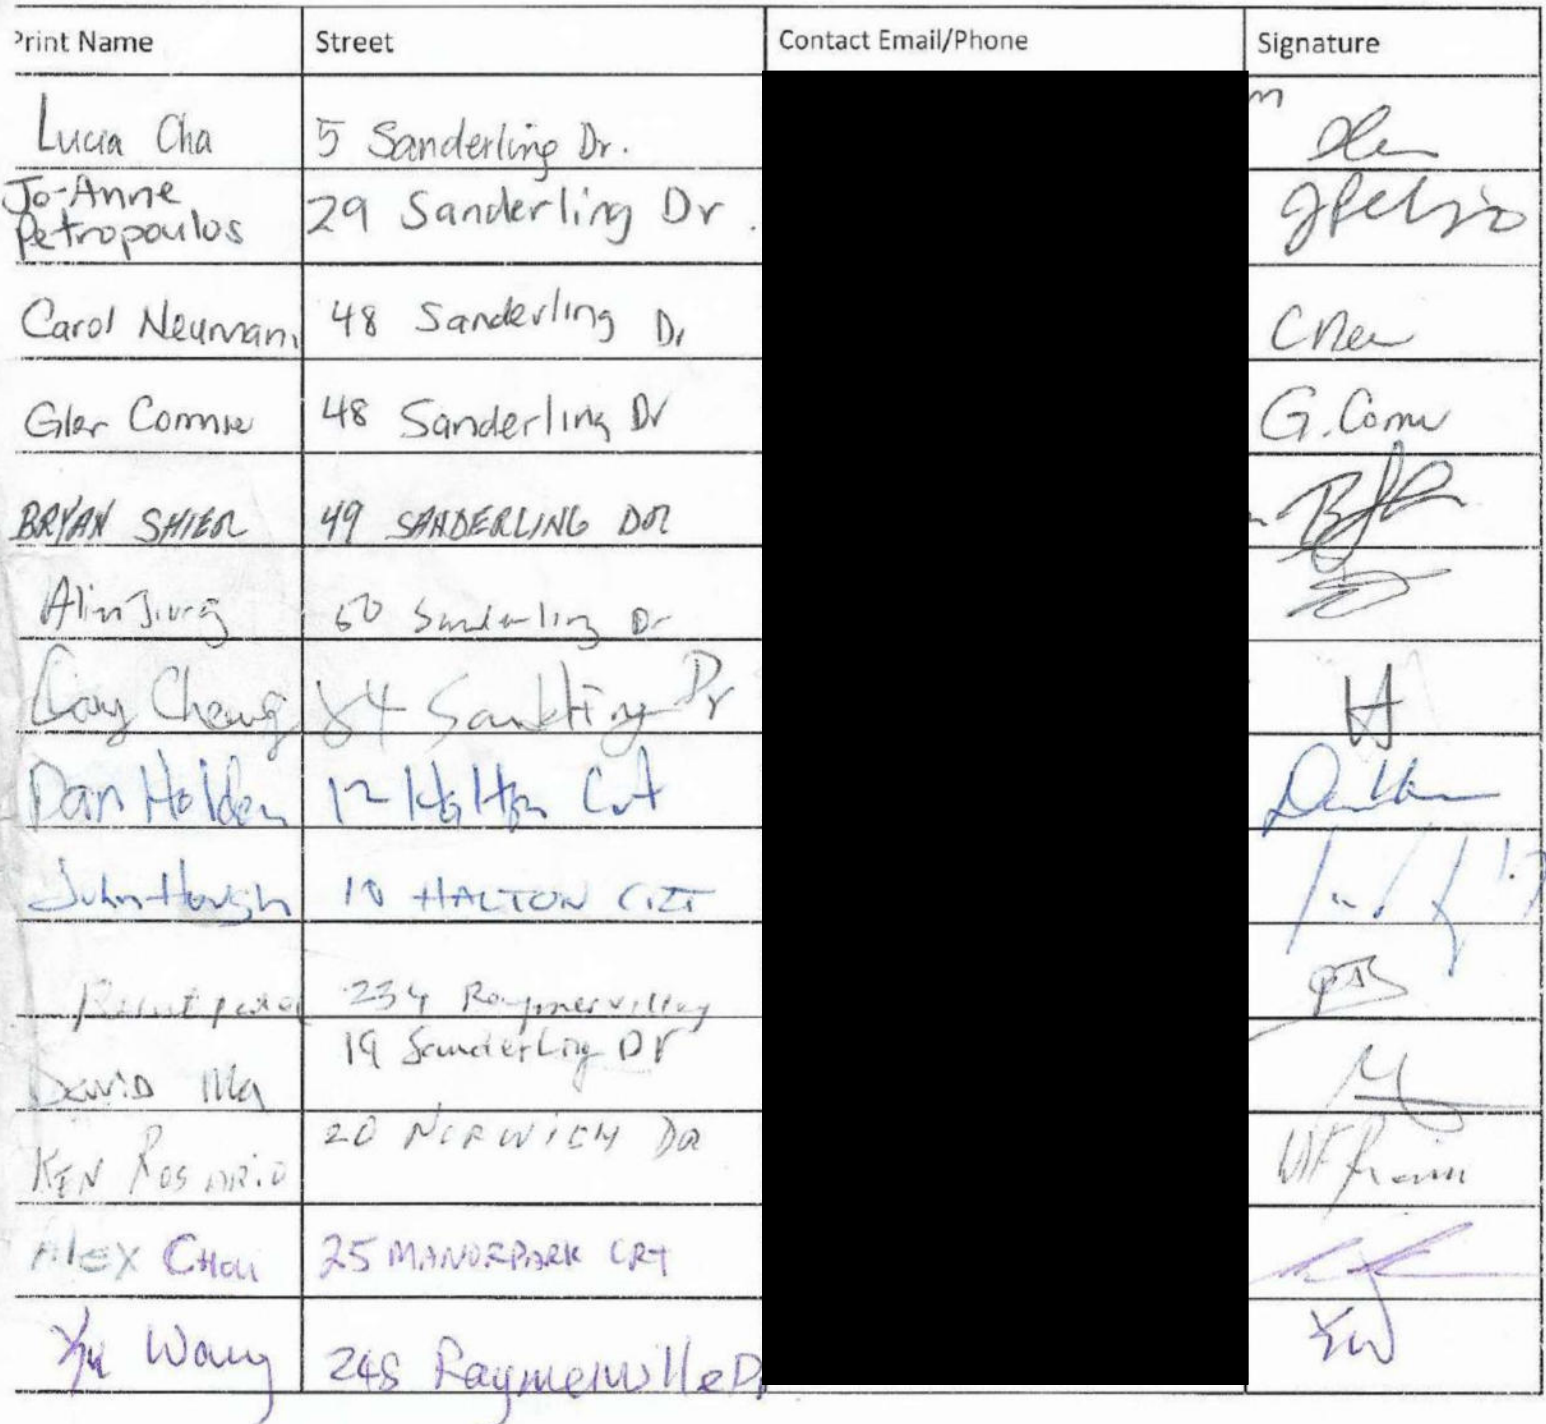 Print Name Street Contact Email/Phone Signature
Lucia Cha 5 Sanderling Dr.
Jo-Anne
Petropoulos 29 Sanderling Dr.
Carol Neumann 48 Sanderling Dr CNeu
Glen Comrie 48 Sanderling Dr G. Comr
BRYAN SHIER 49 SANDERLING DR
60 Sanderling Dr
Cheung 84 Sanderling Dr H
Dan Holden 12 Halton Crt
John Hough 10 HALTON CRT
234 Raymerville
David Ma 19 Sanderling Dr
KEN ROSARIO 20 NORWICH DR
ALEX CHOI 25 MANORPARK CRT
Yu Wang 248 Raymerville Dr YW